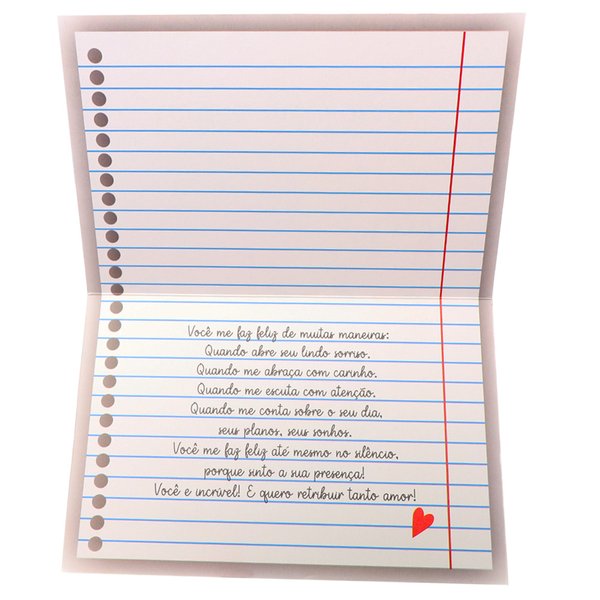 Você me faz feliz de muitas maneiras:
Quando abre seu lindo sorriso.
Quando me abraça com carinho.
Quando me escuta com atenção.
Quando me conta sobre o seu dia,
seus planos, seus sonhos.
Você me faz feliz até mesmo no silêncio,
porque sinto a sua presença!
Você e incrível! E quero retribuir tanto amor!